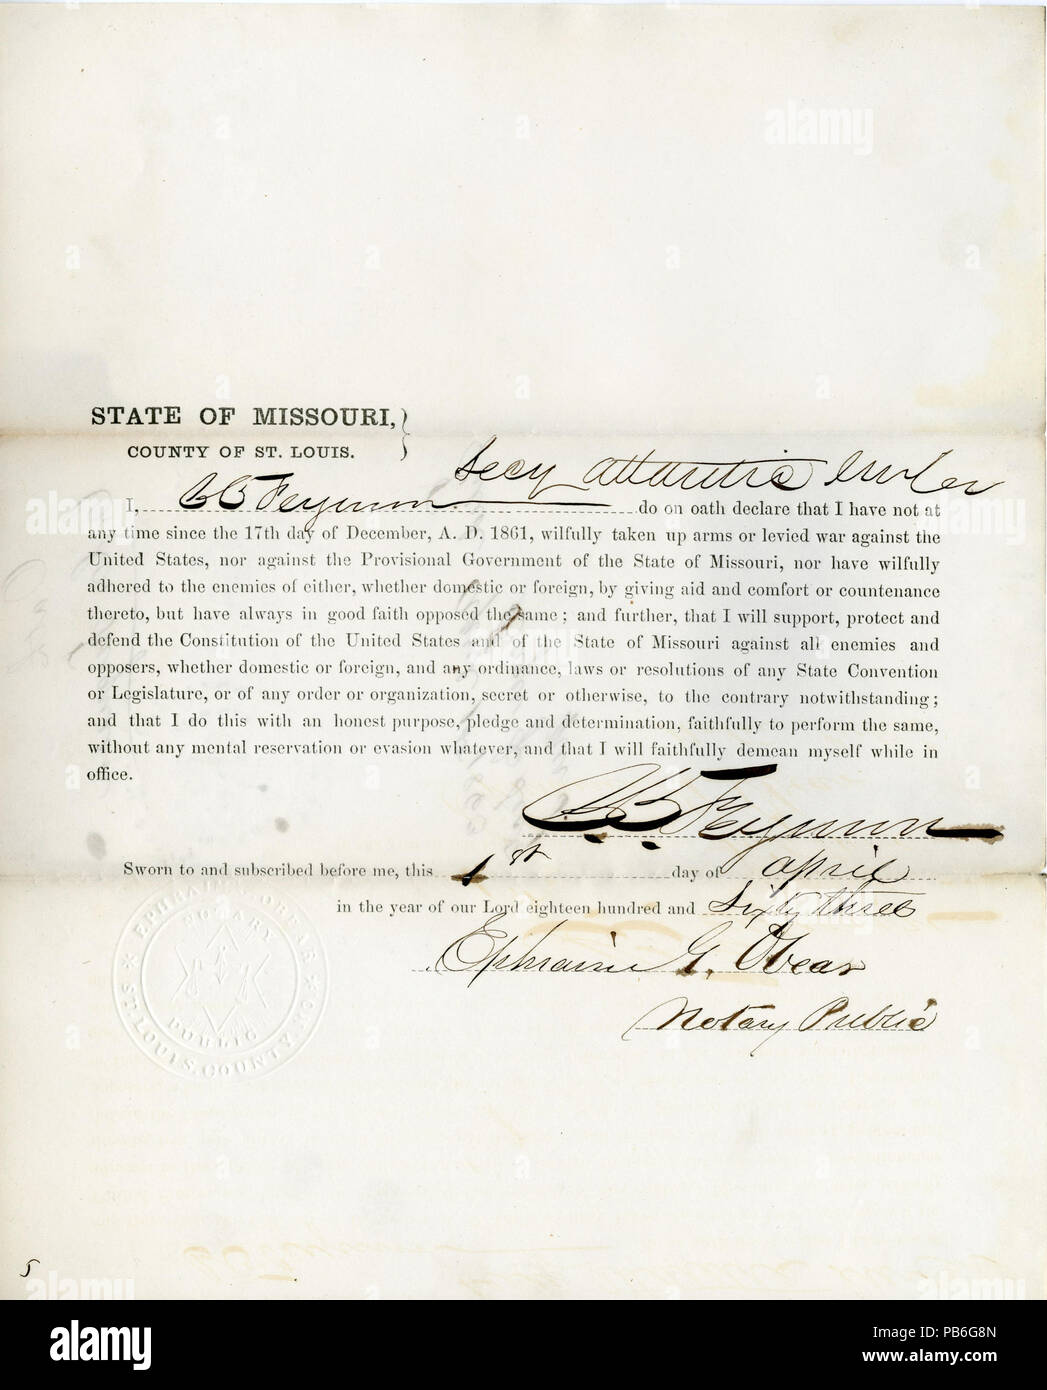 STATE OF MISSOURI,
COUNTY OF ST. LOUIS.
Secy Atlantic
I, do on oath declare that I have not at
any time since the 17th day of December, A. D. 1861, wilfully taken up arms or levied war against the
United States, nor against the Provisional Government of the State of Missouri, nor have wilfully
adhered to the enemies of either, whether domestic or foreign, by giving aid and comfort or countenance
thereto, but have always in good faith opposed the same; and further, that I will support, protect and
defend the Constitution of the United States and of the State of Missouri against all enemies and
opposers, whether domestic or foreign, and any ordinance, laws or resolutions of any State Convention
or Legislature, or of any order or organization, secret or otherwise, to the contrary notwithstanding;
and that I do this with an honest purpose, pledge and determination, faithfully to perform the same,
without any mental reservation or evasion whatever, and that I will faithfully demean myself while in
office.
Sworn to and subscribed before me, this 1st day of April
in the year of our Lord eighteen hundred and Sixty three
Ephraim G. Obear
Notary Public
NOTARY
PUBLIC
ST. LOUIS, COUNTY, MO
5
alamy
Image ID: PB6G8N
www.alamy.com